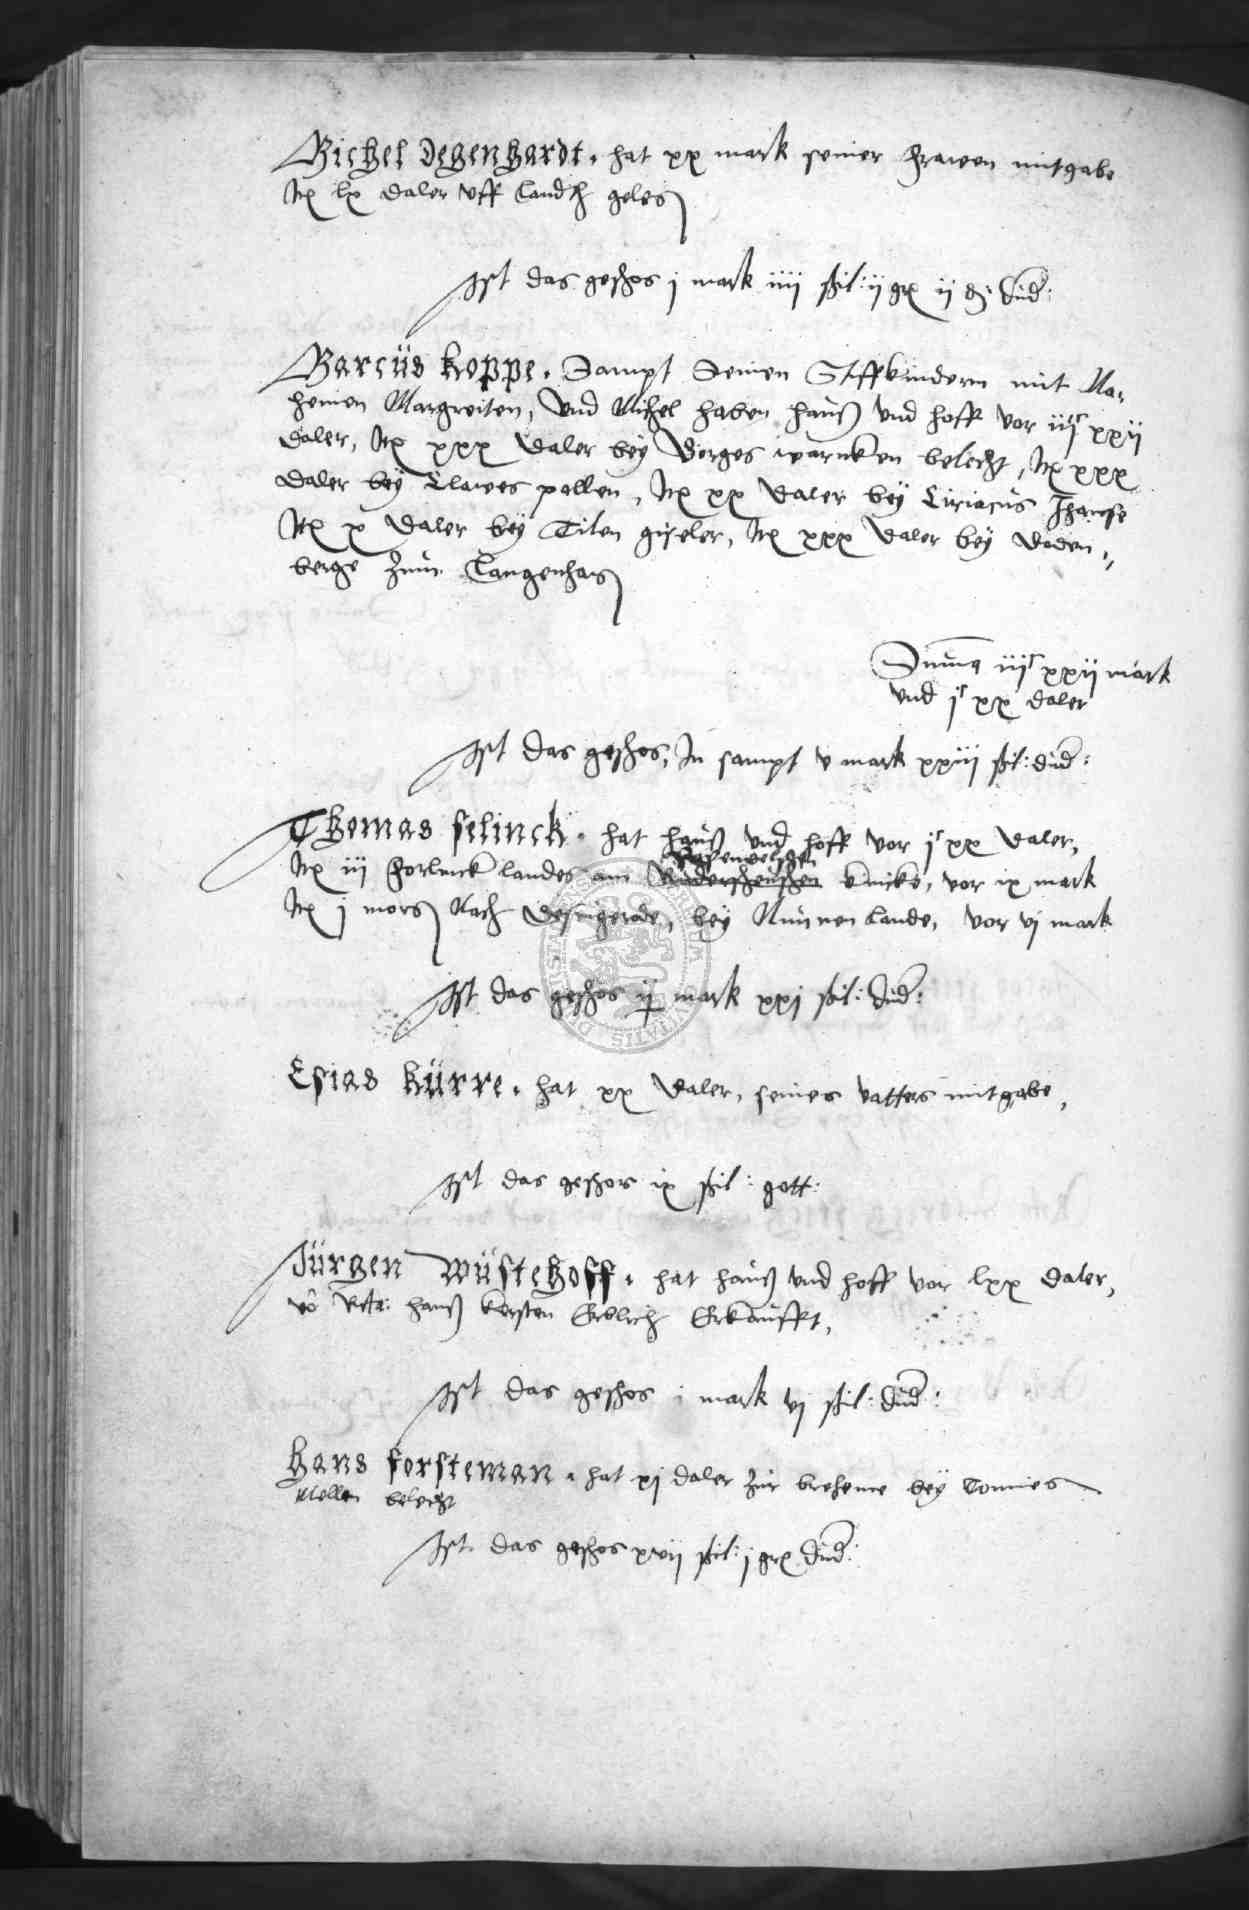 Michel Degenhardt. hat xx mark seiner frawen mitgabe
Itē lx daler vff landē geles
Ist das geschos j mark iiij schil: ij gr ij d: Dud:
Marcus Koppe. Sampt Seinen Stiffkindern mit Na-
hemen Margreiten, vnd Michel haben hauß vnd hoff vor iijc xxij
daler, Itē xxx daler bey Borges warnken belecht, Itē xxx
daler bey Clawes pollen, Itē xx daler bey Ciriacus
Itē x daler bey Tilen giseler, Itē xxx daler bey Doden-
berge zum Langenhag
Summa iijc xxij mark
vnd jc xx daler
Ist das geschos, In sampt v mark xxiij schil: dud:
Thomas Selinck. hat hauß vnd hoff vor jc xx daler,
Itē iij forlinck landes am knicke, vor ix mark
Itē j morg Nach Desingerode, bey Nunnen lande, vor vj mark
Ist das geschos ij mark xxj schil: Dud:
Esias Kürre. hat xx daler, seines vatters mitgabe,
Ist das geschos ix schil: gott:
Jürgen Wüstehoff. hat hauß vnd hoff vor lxx daler,
vō hanß kersten Erblich Erkaufft,
Ist das geschos i mark vj schil: Dud:
Hans Forsteman. hat xj daler zur breheme bey Tonnies
Mollen belecht
Ist das geschos xvij schil: j gr Dud:
SIGILLUM CIVITATIS